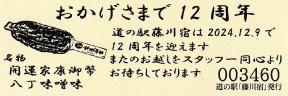 おかげさまで 12 周年
道の駅藤川宿は 2024.12.9 で
12 周年を迎えます
またのお越しをスタッフ一同心より
お待ちしております
名物
開運家康御幣
八丁味噌味
003460
道の駅「藤川宿」発行